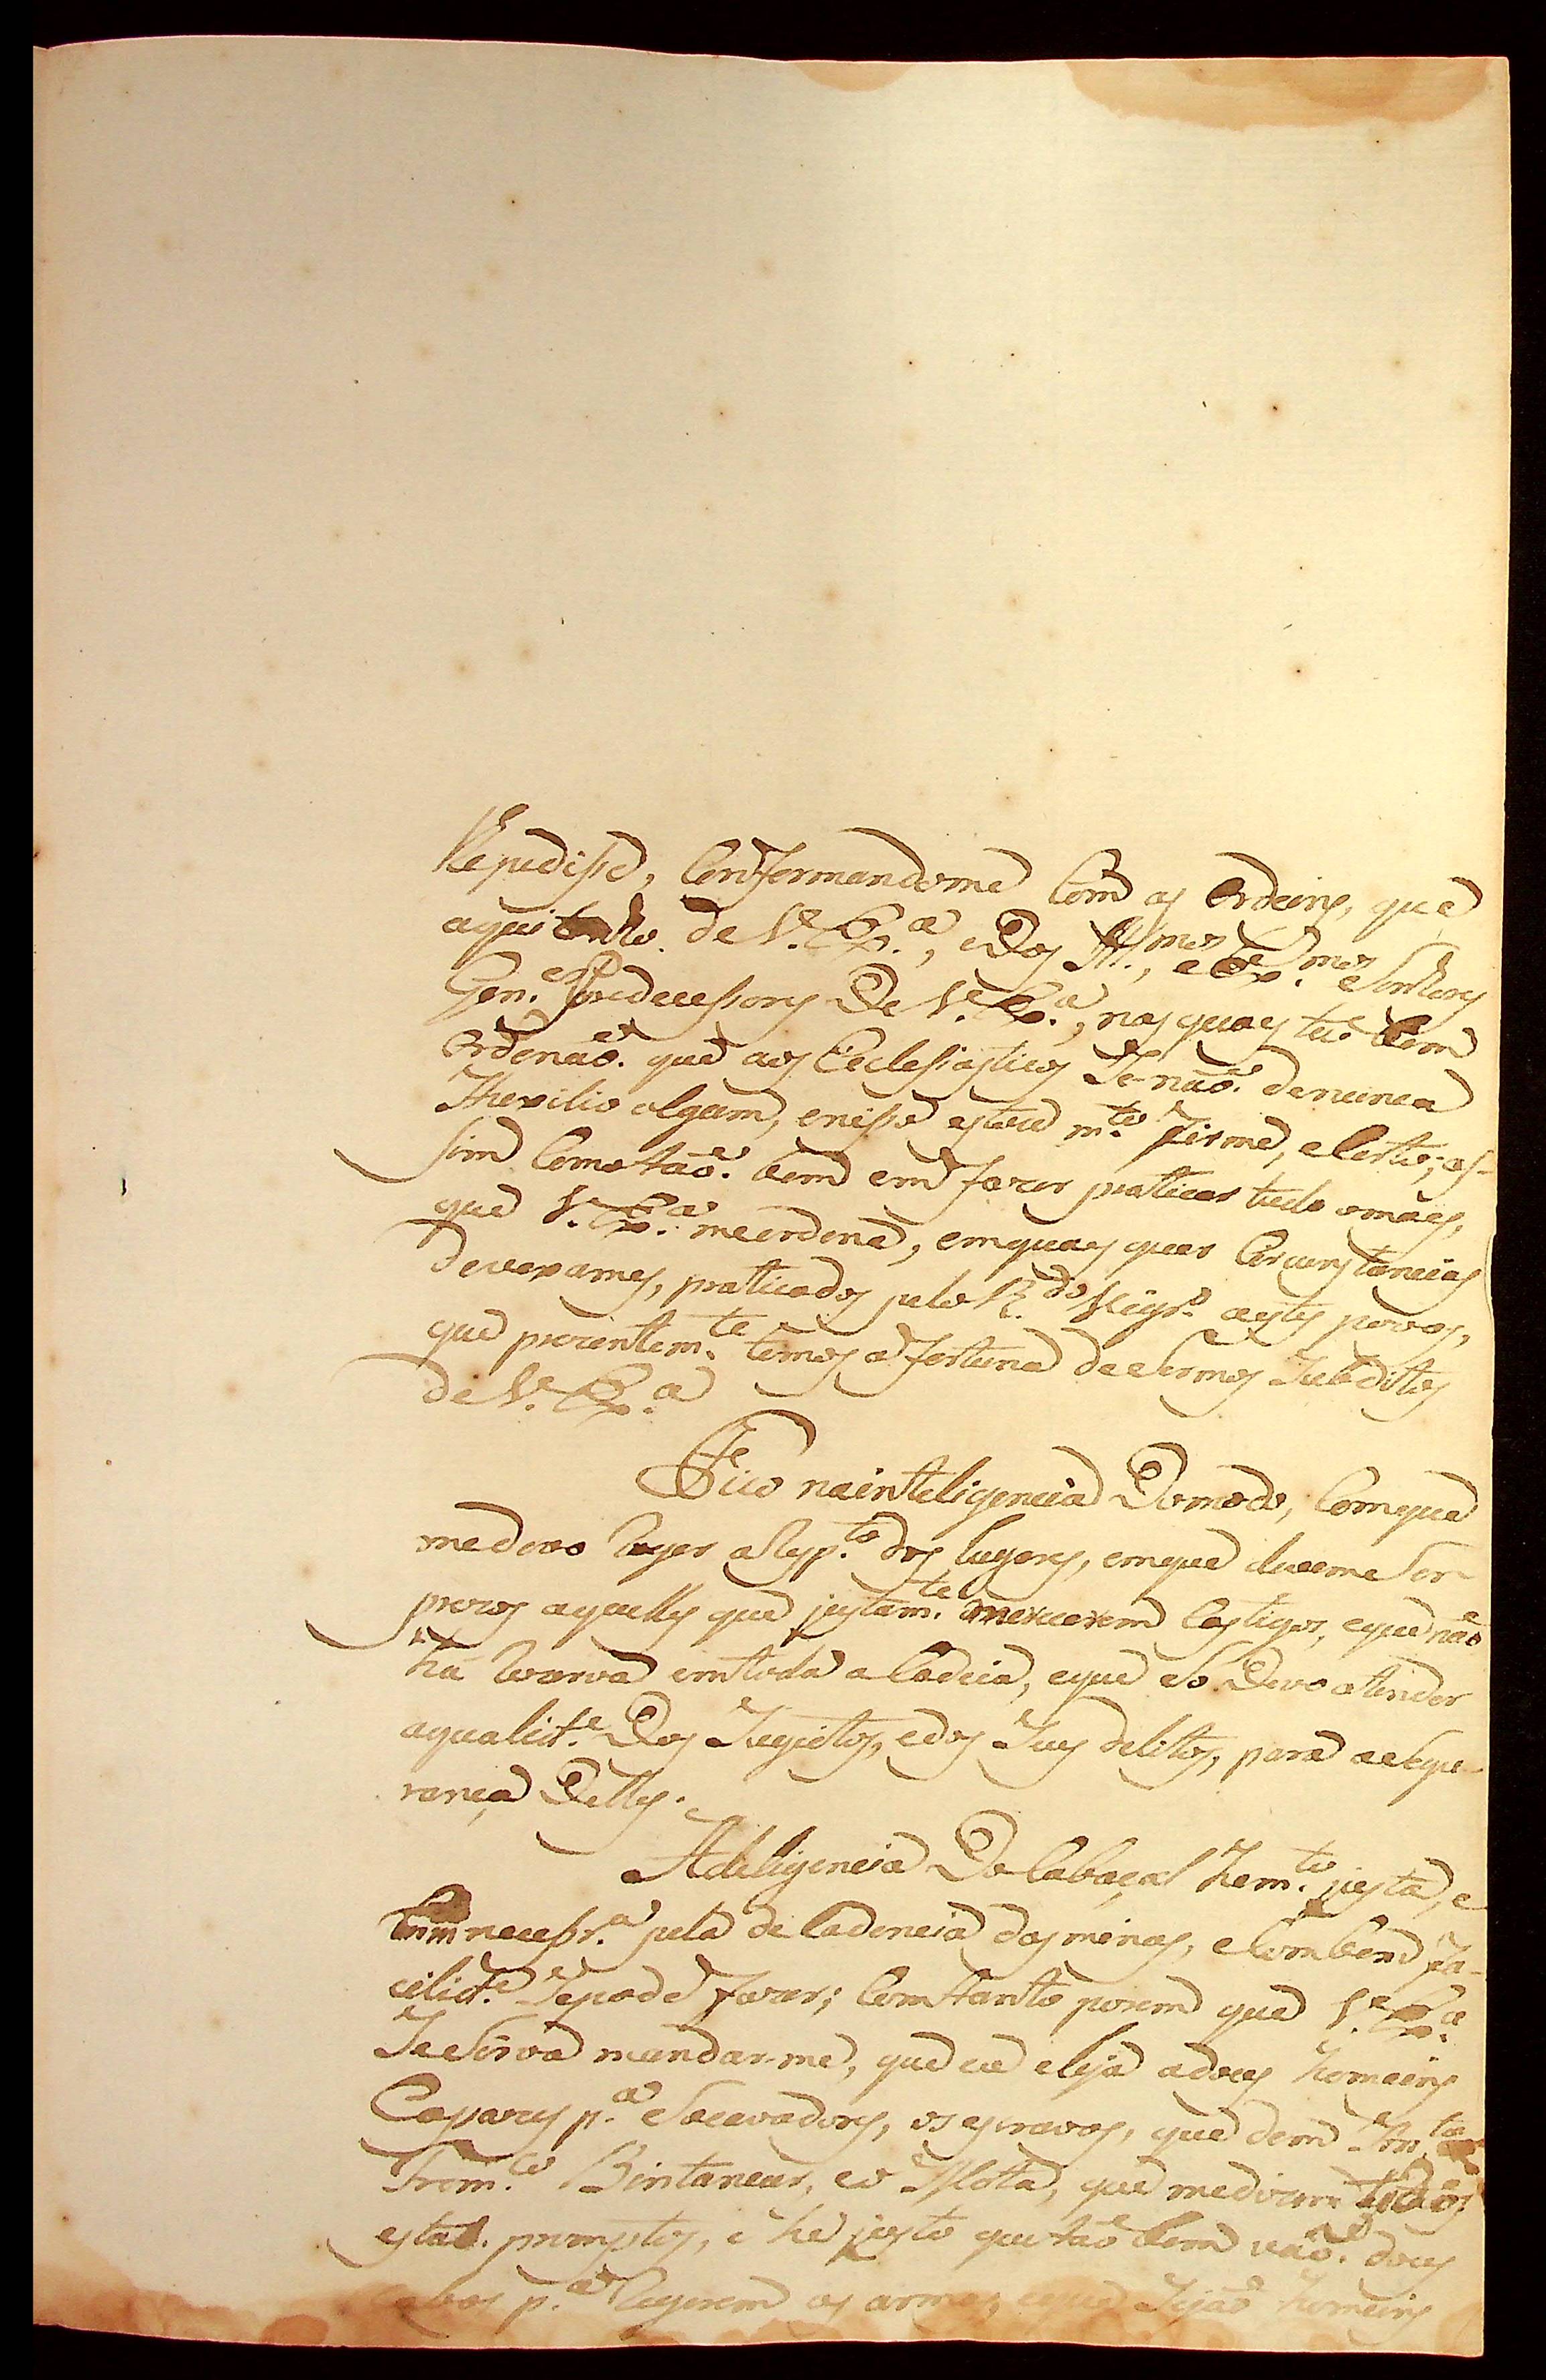 Repedisse, Conformandome Com as Ordeins, que
aqui tenho de V. Ex.ª, e Dos Ill.mos, e Ex.mos Senhores
Gen.es Predecessores De V. Ex.ª, nas quaes tão bem
Ordenão. que aos Ecclesiasticos Se não. de nunca
Auxilio algum, e nisso estou m.to Firme, e Certo; as-
sim Como tão. bem em fazer praticar tudo omaes,
que V. Ex.ª me ordena, emquaes quer Circunstancias
de vexames, praticados pelo R.do Vigr.º a estes povos,
que prezentem.te temos a fortuna de Sermos Subditos
de V. Ex.ª
Fico na inteligencia Do modo, Com que
me devo reger a Resp.to dos lugares, em que devem Ser
prezos aquelles que justam.te merecerem Castigos, e que não
há rezerva em toda a Cadeia, e que só Devo atender
a qualid.e Dos Sugeitos, e dos Seus delitos, para a Segu-
rança Delles.
A deligencia Do Cabaçal he m.to justa, e
necessr.ª pela de Cadencia das minas, e Com bem fa-
cilid.e Se pode fazer; Com tanto porem que V. Ex.ª
Se Sirva mandar-me, que eu eleja a dous homeins
Capazes p.ª Socavadores, os escravos, que dem
From.to Bintancur, e o Mota, que me dizem
estão. promptos, e he justo que tão bem vão. dous
p.ª Regerem as armas, e que Sejão homeins